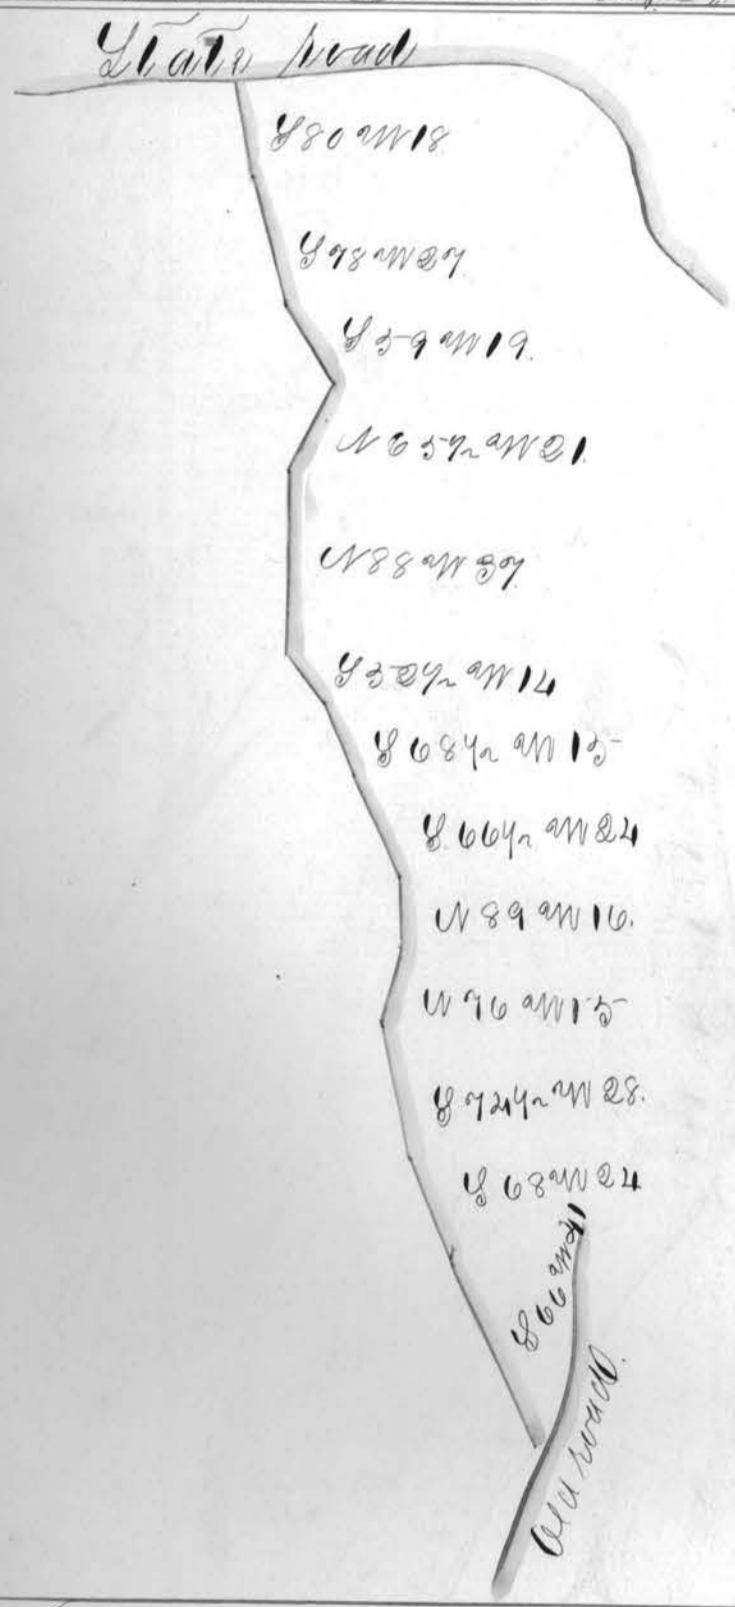 State road
S 80 W 18
S 78 W 27
S 59 W 19.
N 65½ W 21
N 88 W 37
S 52½ W 14
S 68½ W 15
S 66½ W 24
N 89 W 16.
N 76 W 15
S 74½ W 28.
S 68 W 24
S 66 W 41
Old road.